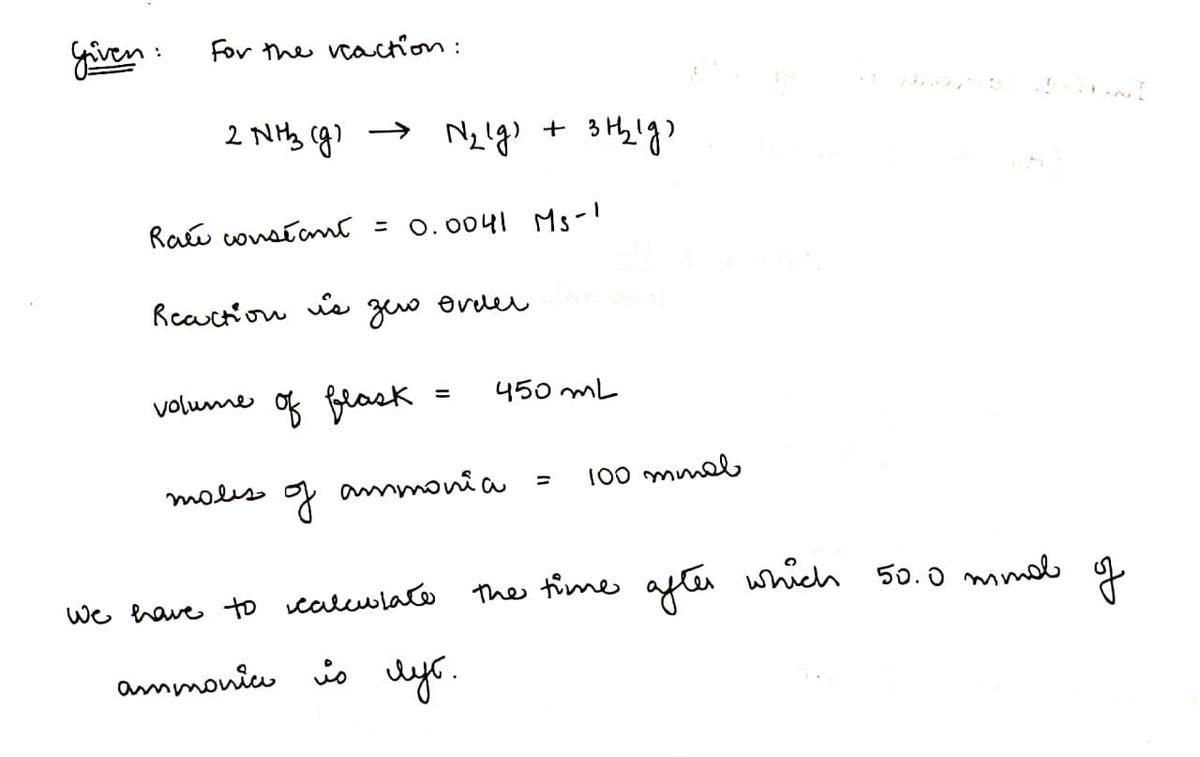 Given : For the reaction :
2 NH₃ (g) → N₂ (g) + 3 H₂ (g)
Rate constant = 0.0041 Ms⁻¹
Reaction is zero order
volume of flask = 450 mL
moles of ammonia = 100 mmol
We have to calculate the time after which 50.0 mmol of
ammonia is left.